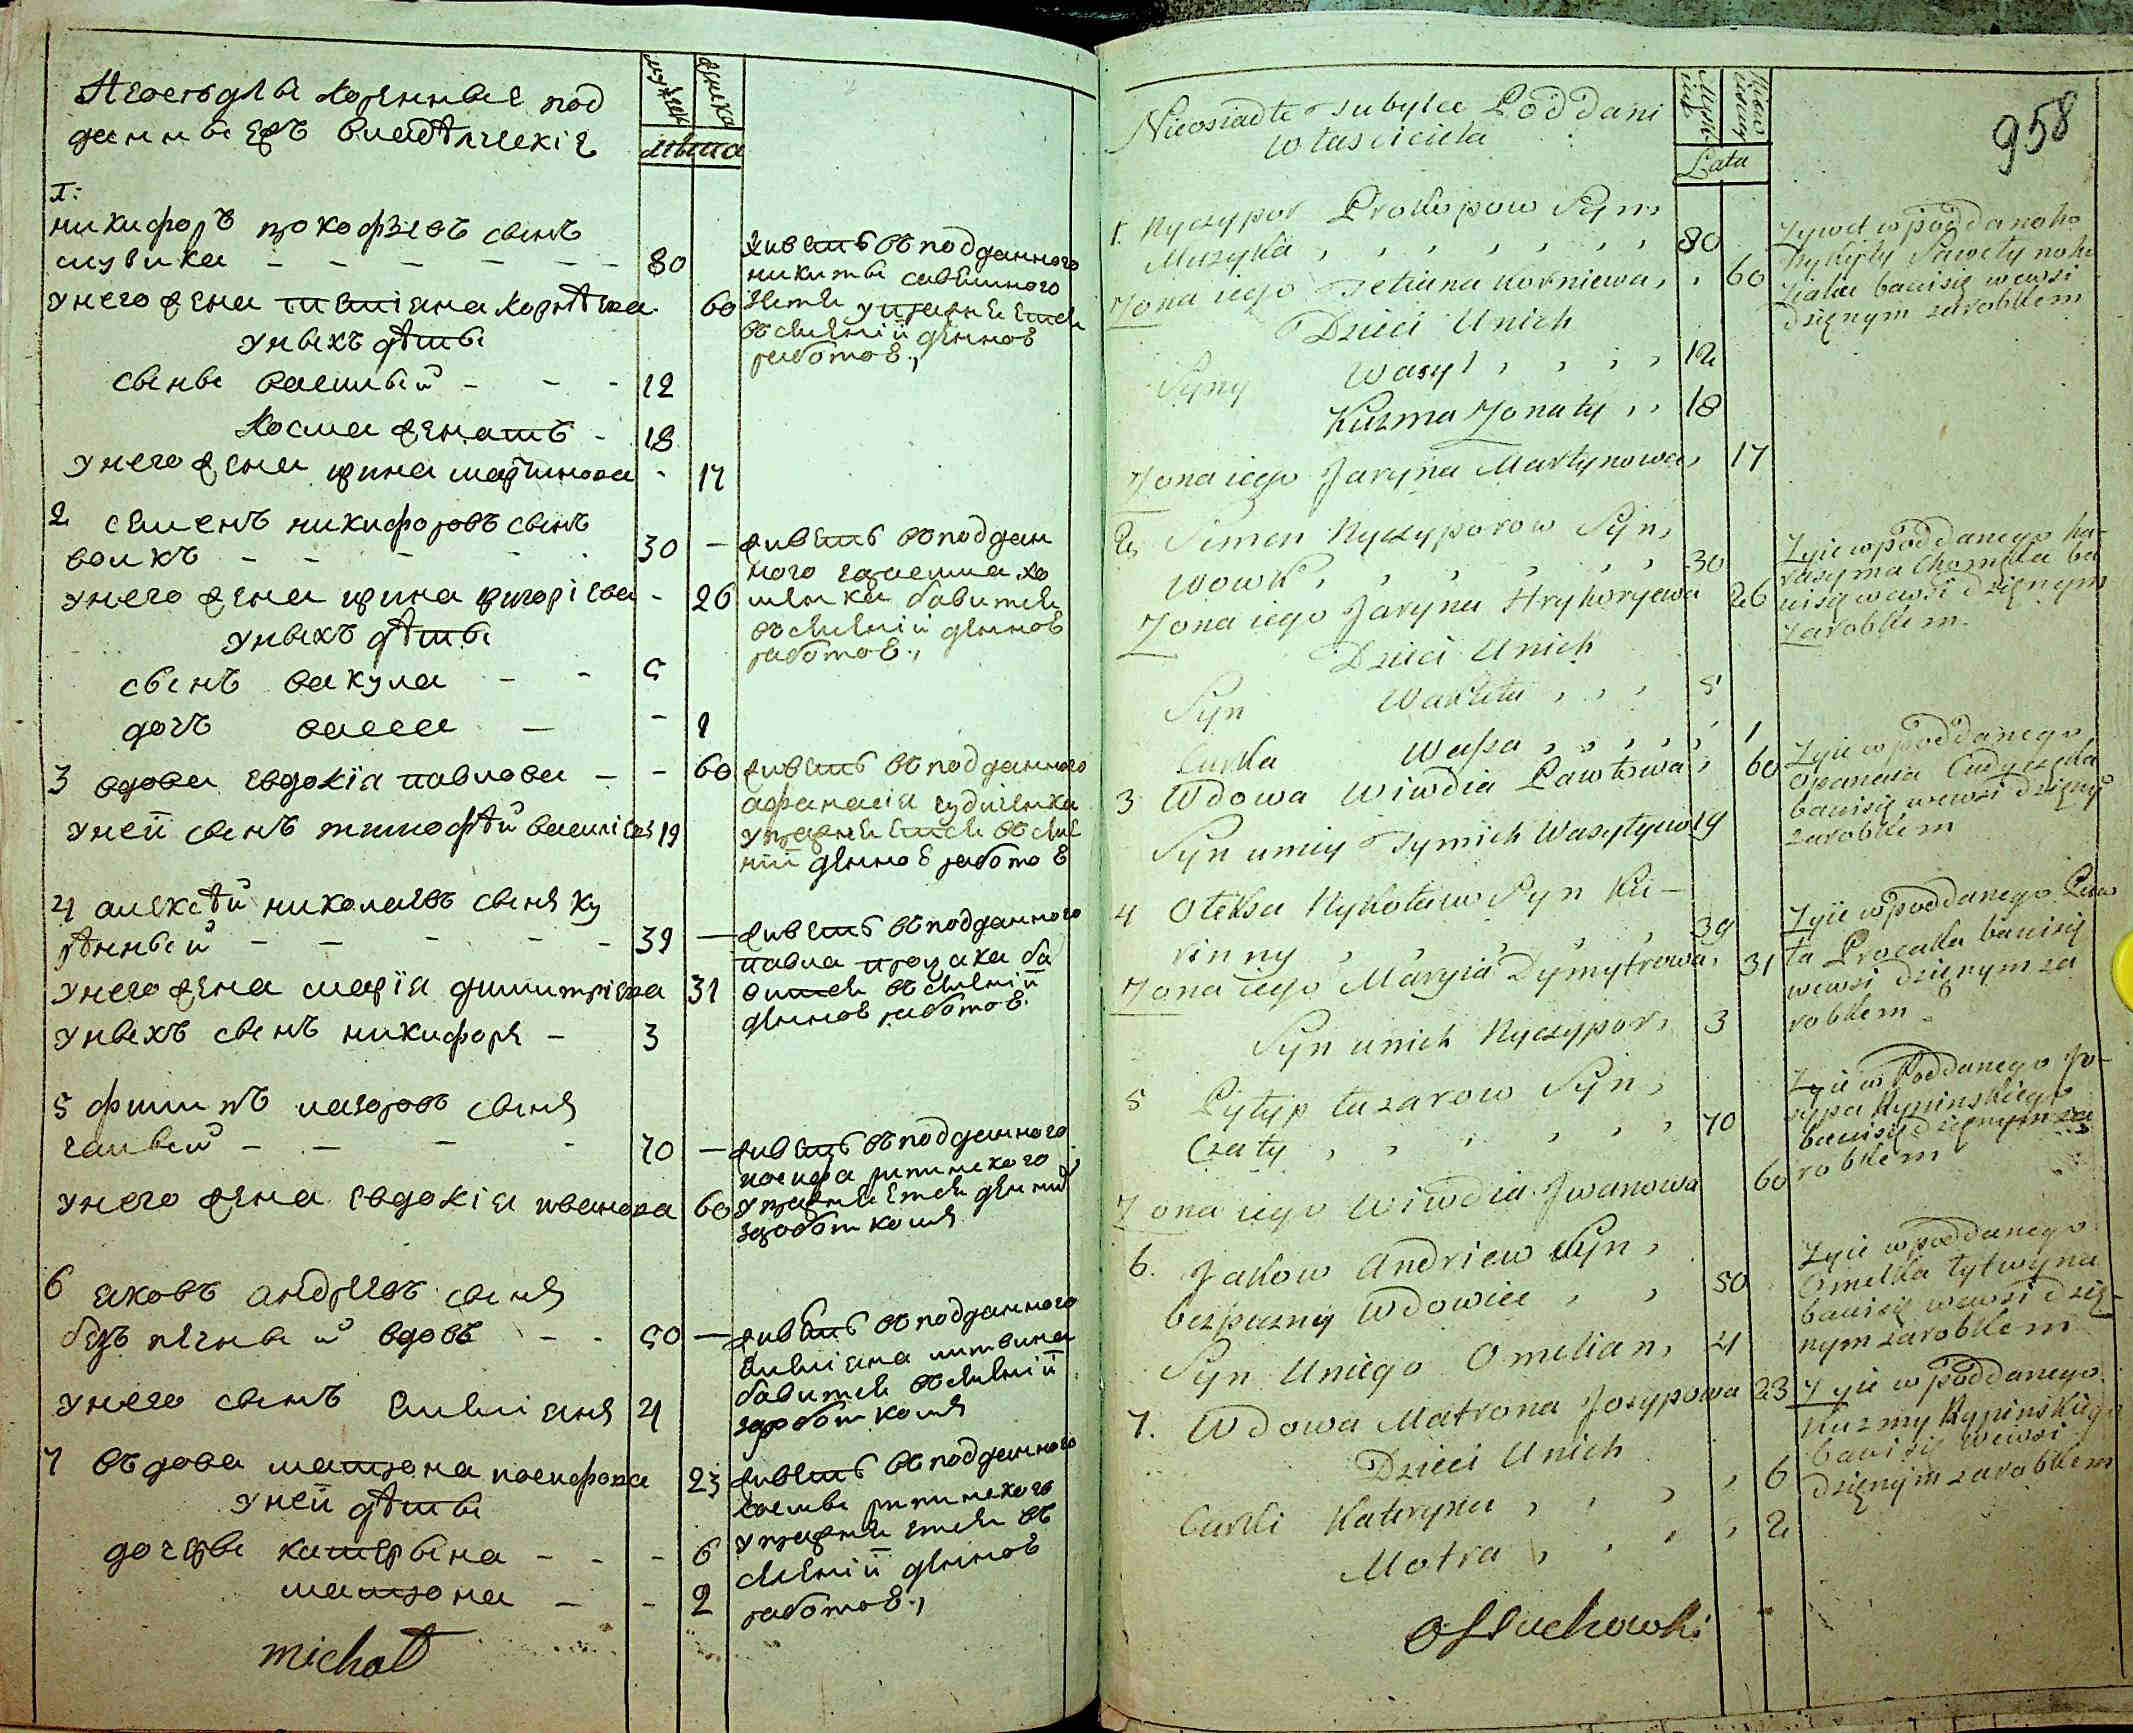 Неоседлые коренные под
данные ехъ владѣлческіе
мужеск
женска
лѣта
1:
никифоръ прокофіевъ сынъ
музыка - - - - - - 80
живетъ въ подданного
никиты савицкого
зятя упражняется
въ селеніи денною
работою.,
у него жена татіана корнѣева 60
у ныхъ дѣты
сыны василый - - - 12
косма женатъ - 18
у него жена ирина мартинова - 17
2 семенъ никифоровъ сынъ
волкъ - - - - - 30 -
живетъ въ поддан
ного герасима хо
менка бавится
въ селеніи денною
работою.,
у него жена ирина григоріева - 26
у ныхъ дѣты
сынъ вакула - - 5
дочъ васса - - 1
3 вдова евдокія павлова - - 60
живетъ въ подданного
афанасія гудиченка
упражняется въ селе
ніи денною работою
у ней сынъ тимофѣй василіевъ 19
4 алексѣй николаевъ сынъ ку
рѣнный - - - - - 39 -
живетъ въ подданного
павла процака ба
вится въ селеніи
денною работою.
у него жена марія димитріева 31
у ныхъ сынъ никифоръ - 3
5 филипъ лазоровъ сынъ
чалый - - - - 70 -
живетъ въ подданного
іосифа рипинского
упражняется денным
заработкомъ
у него жена евдокія иванова 60
6 яковъ андреевъ сынъ
безъпечный вдовъ - - 50 -
живетъ въ подданного
емеліана литвина
бавится въ селеніи
заработкомъ
у него сынъ емеліянъ 4
7 въдова матрона іосифова 23
живетъ въ подданного
космы рипинского
упражняется въ
селеніи денною
работою.,
у ней дѣты
дочеры катерына - - - 6
матрона - - 2
michał
958
Nieosiadłe Tubylce Poddani
właściciela
Męsk
Lata
1. Nyczypor Prokopow Syn,
Muzyka , , , , , , , 80
Zona iego Tetiana Korniewa, , 60
Dzieci Unich
Syny Wasyl , , , , 12
Kuzma Zonaty , , 18
Zona iego Jaryna Martynowa, 17
2, Simen Nyczyporow Syn,
Wowk , , , , , , 30
Zona iego Jaryna Hryhoryewa 26
Zyie w poddanego ha-
rasyma Chomenka ba
wisię wewsi dziennym
zarobkem.
Dzieci Unich
Syn Wakuła , , , 5
Curka Wassa , , , , , 1
3 Wdowa Wiwdia Pawłowa , 60
Zyie w poddanego
Opanasa Gudyczenka
bawisię wewsi dzienny
zarobkem
Syn uniey Tymich Wasylyiw 19
4 Oleksa Nykołaiw Syn Ku-
rinny , , , , , 39
Zona iego Maryia Dymytrowa, 31
Zyie w poddanego Paw
ła Procaka bawisię
wewsi dziennym za
robkem
Syn unich Nyczypor, 3
5 Pyłyp Łazarow Syn,
Czały , , , , , , 70
Zyie w Poddanego Jo-
sypa Rypinskiego
bawisię dziennym za
robkem
Zona iego Wiwdia Jwanowa 60
6. Jakow Andriew Syn,
bezpeczny Wdowiec , , 50
Zyie w poddanego
Omelka Łytwyna
bawisię wewsi dzien-
nym zarobkem
Syn Uniego Omelian, 4
7. Wdowa Matrona Josypowa 23
Zyie w poddanego
Kuzmy Rypinskiego
bawisię wewsi
dziennym zarobkem
Dzieci Unich
Curki Kateryna , , , , 6
Motra , , , , 2
Ossuchowski